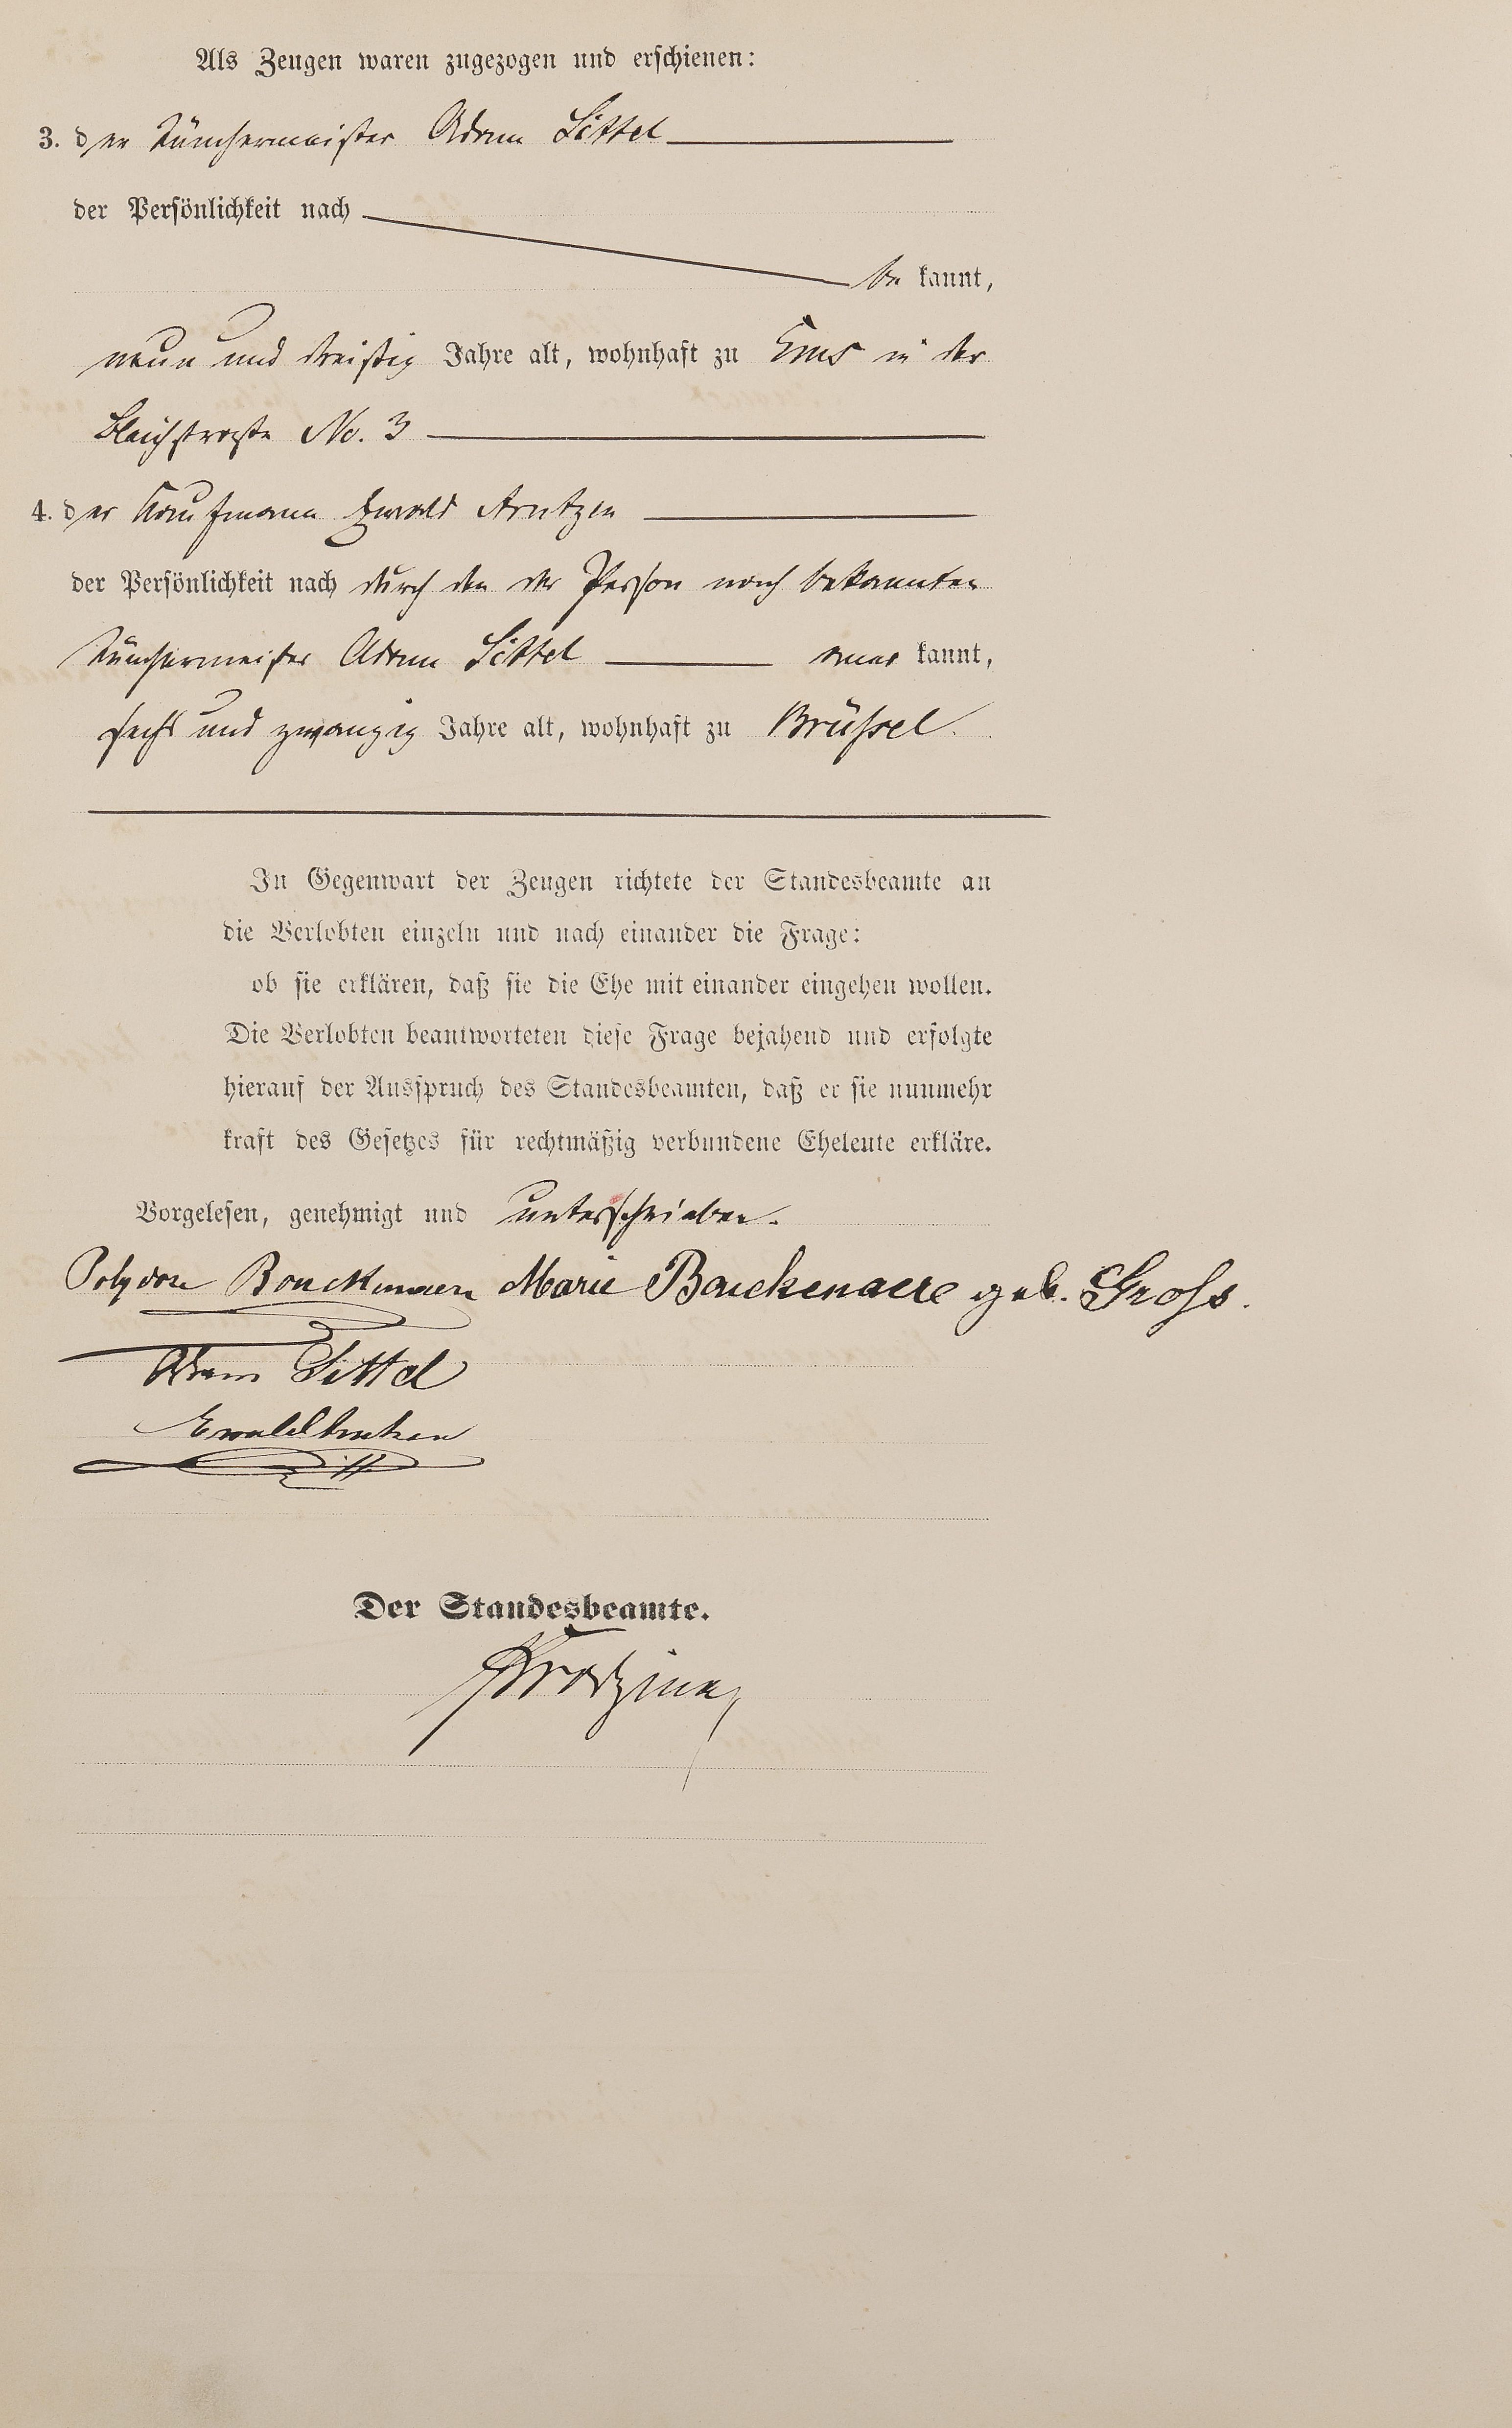 Als Zeugen waren zugezogen und erschienen:
3. der Tünchermeister Adam Sittel
der Persönlichkeit nach
be kannt,
neun und dreißig Jahre alt, wohnhaft zu Ems in der
Bleichstraße No. 3
4. der Kaufmann Ewald Arntzen
der Persönlichkeit nach durch den der Person nach bekannten
Tünchermeister Adam Sittel aner kannt,
sechs und zwanzig Jahre alt, wohnhaft zu Brüssel.
In Gegenwart der Zeugen richtete der Standesbeamte an
die Verlobten einzeln und nach einander die Frage:
ob sie erklären, daß sie die Ehe mit einander eingehen wollen.
Die Verlobten beantworteten diese Frage bejahend und erfolgte
hierauf der Ausspruch des Standesbeamten, daß er sie nunmehr
kraft des Gesetzes für rechtmäßig verbundene Eheleute erkläre.
Vorgelesen, genehmigt und unterschrieben.
Polydore Bouckenaere Marie Bouckenaere geb. Groß.
Adam Sittel
Ewald Arntzen
Der Standesbeamte.